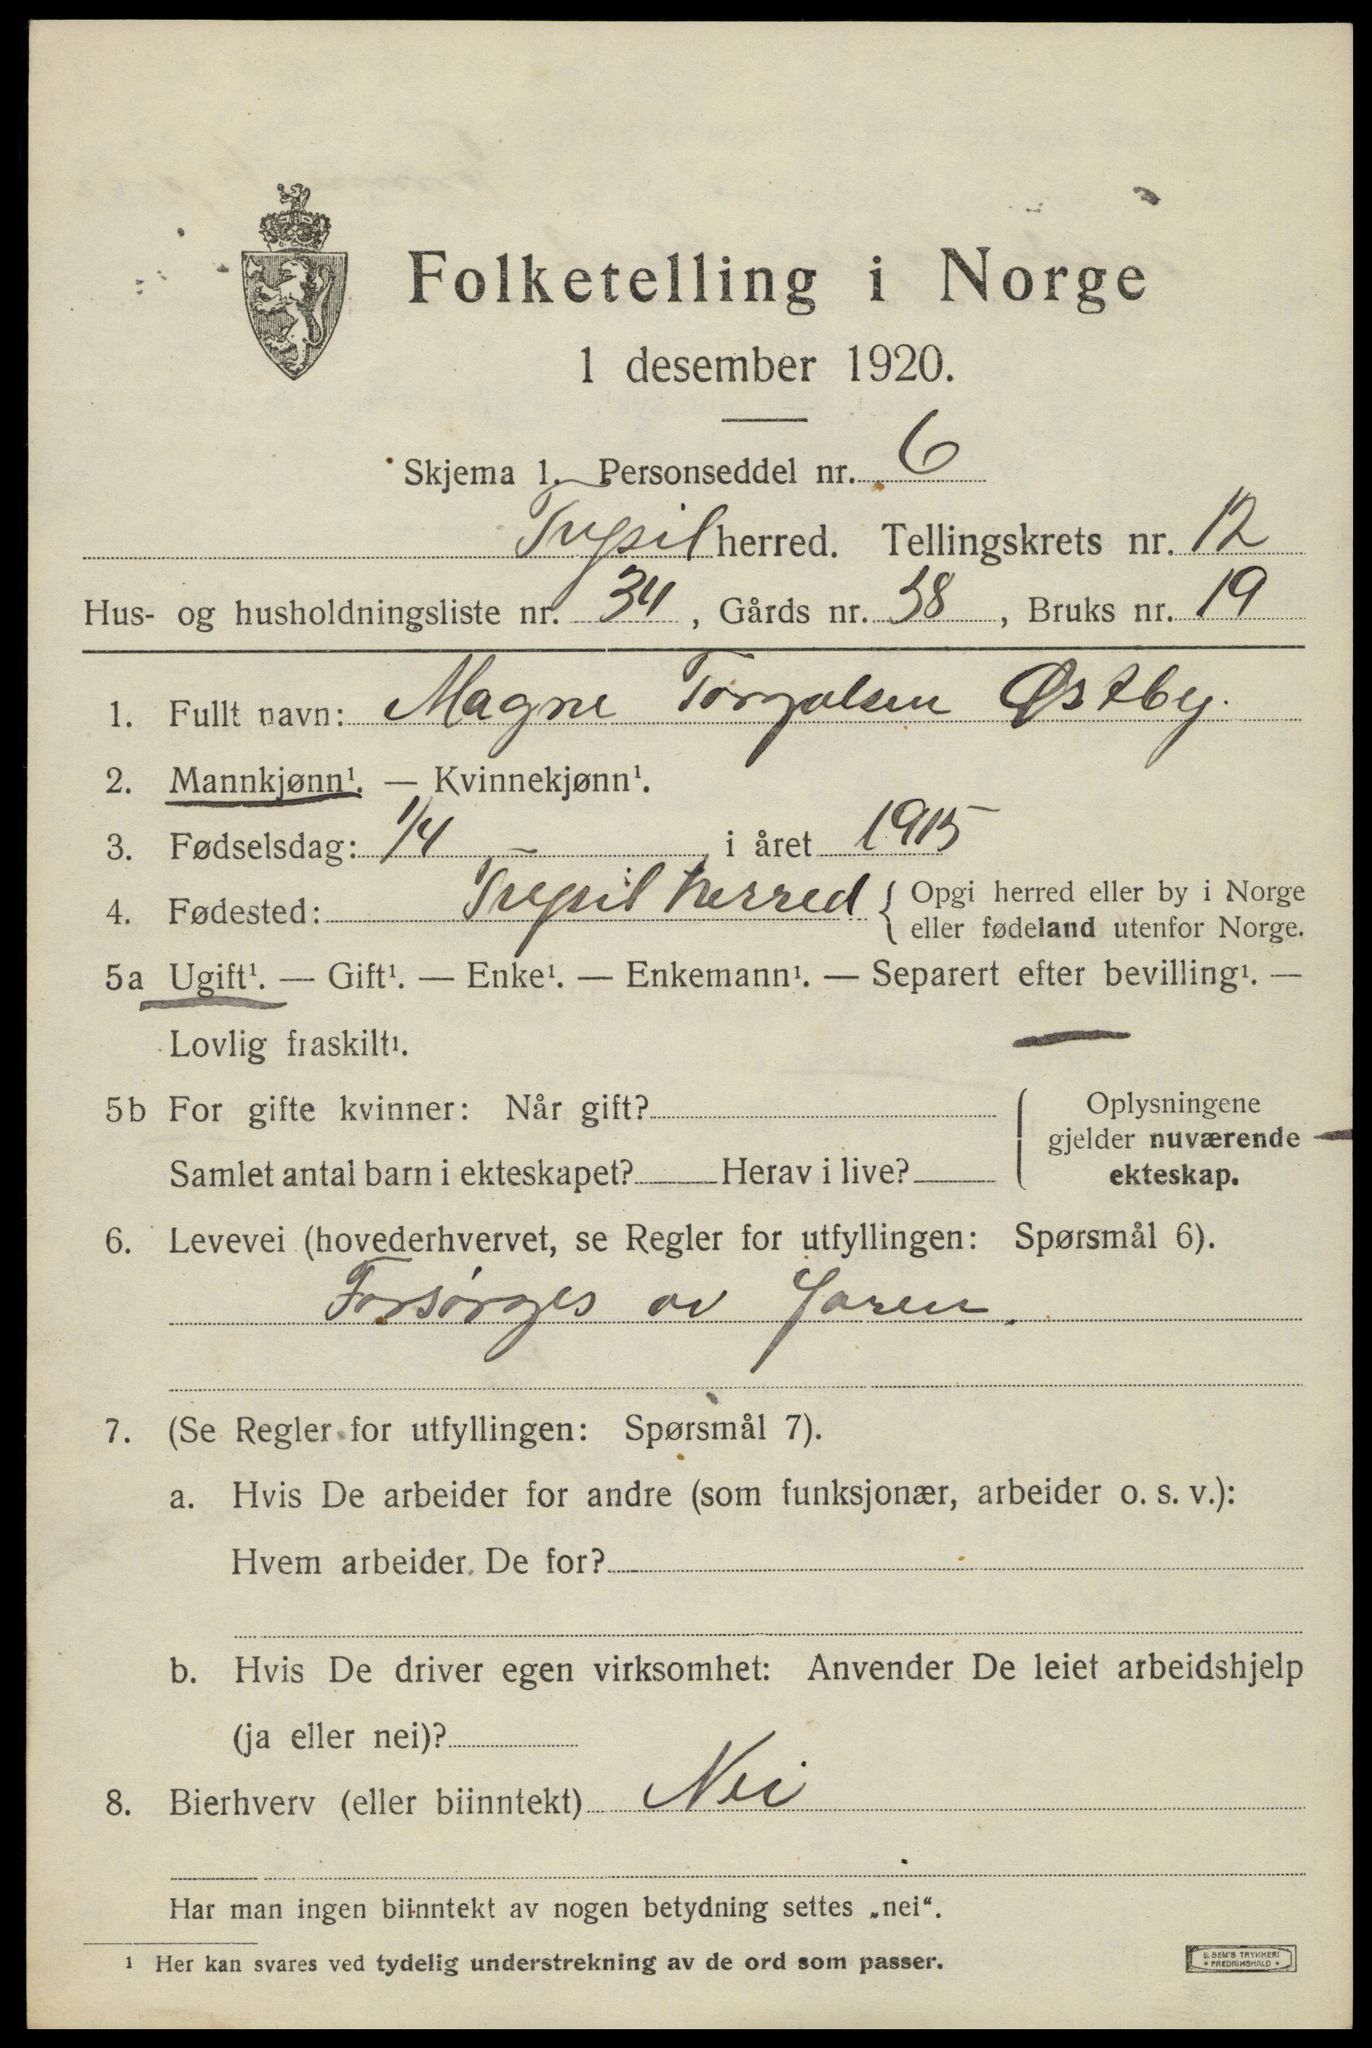 Folketelling i Norge
1 desember 1920.
Skjema 1. Personseddel nr. 6
Trysil herred. Tellingskrets nr. 12
Hus- og husholdningsliste nr. 34, Gårds nr. 38, Bruks nr. 19
1. Fullt navn: Magne Torgalsen Østby.
2. Mannkjønn¹. — Kvinnekjønn¹.
3. Fødselsdag: 1/4 i året 1915
4. Fødested: Trysil herred { Opgi herred eller by i Norge
eller fødeland utenfor Norge.
5a Ugift¹. — Gift¹. — Enke¹. — Enkemann¹. — Separert efter bevilling¹. —
Lovlig fraskilt¹.
5b For gifte kvinner: Når gift?
Samlet antal barn i ekteskapet? Herav i live?
Oplysningene
gjelder nuværende
ekteskap.
6. Levevei (hovederhvervet, se Regler for utfyllingen: Spørsmål 6).
Forsørges av faren.
7. (Se Regler for utfyllingen: Spørsmål 7).
a. Hvis De arbeider for andre (som funksjonær, arbeider o. s. v.):
Hvem arbeider De for?
b. Hvis De driver egen virksomhet: Anvender De leiet arbeidshjelp
(ja eller nei)?
8. Bierhverv (eller biinntekt) Nei
Har man ingen biinntekt av nogen betydning settes „nei“.
¹ Her kan svares ved tydelig understrekning av de ord som passer.
E. SEM'S TRYKKERI
* FREDRIKSHALD *